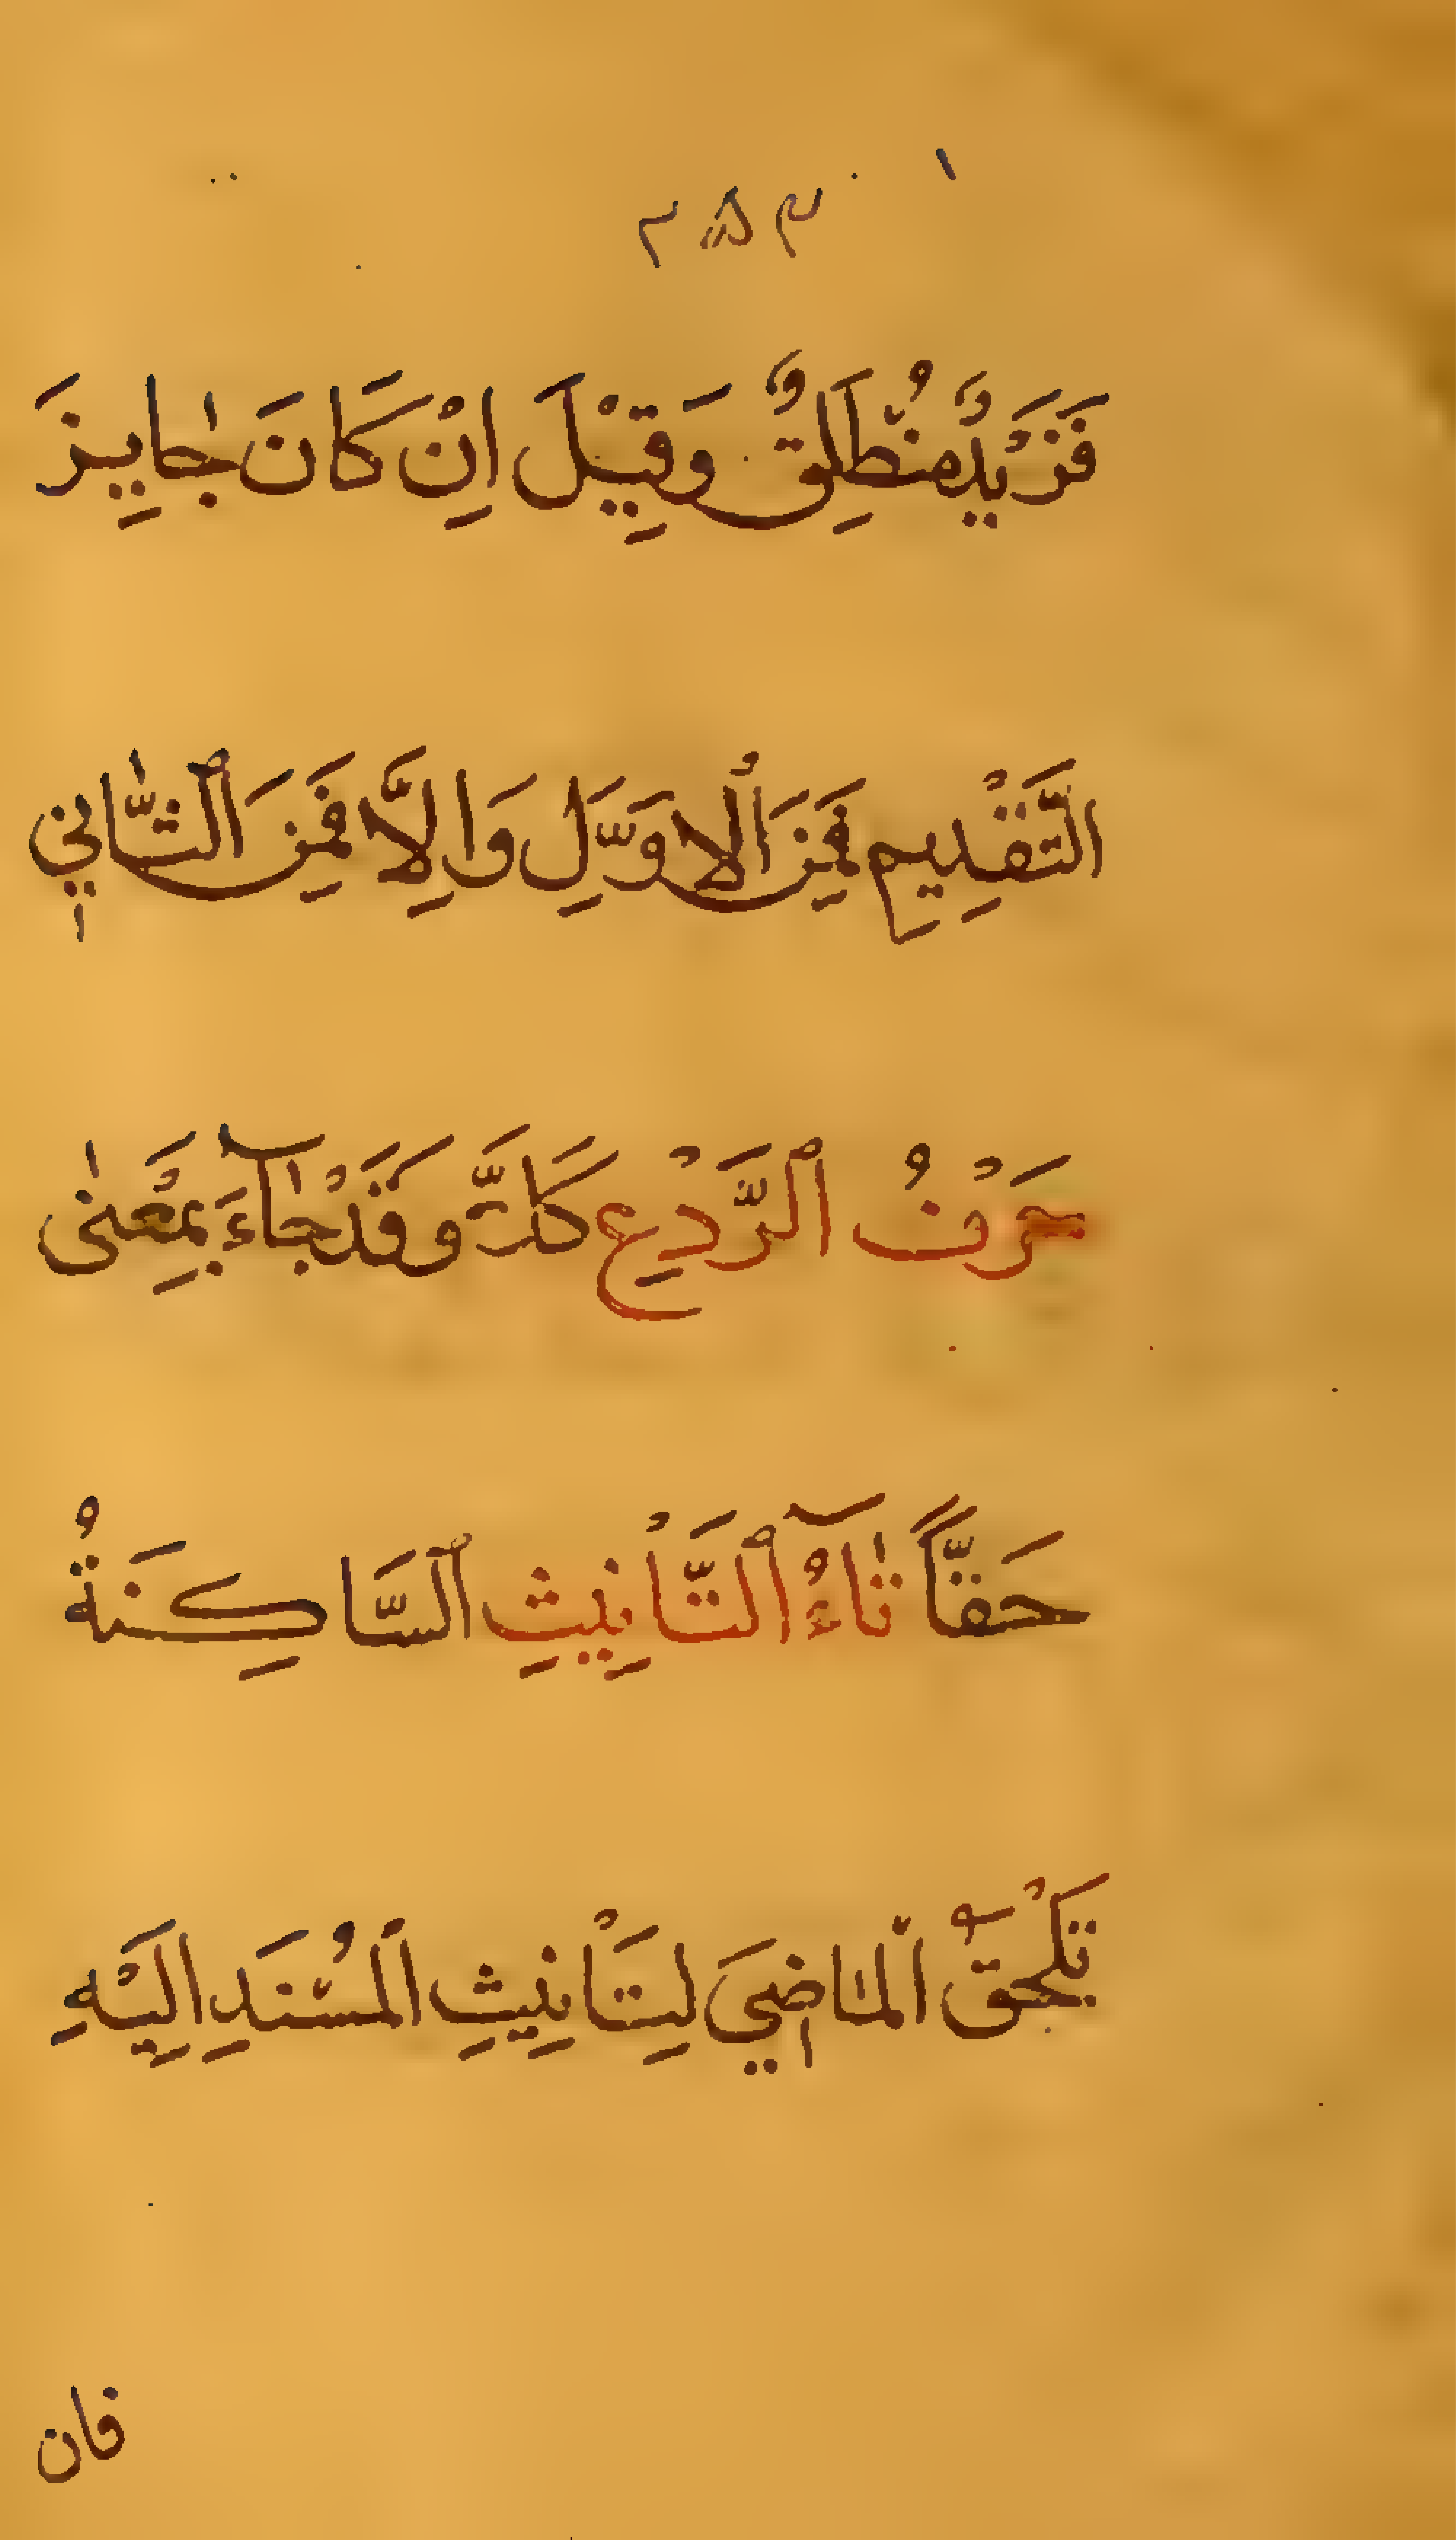 فَزَيْدٌ مُنْطَلِقٌ وَقِيْلَ اِنْ كَانَ جَايِزَ
التَّقْدِيمِ فَمِنَ ٱلْاَوَّلِ وَاِلَّا فَمِنَ ٱلثَّانِي
حَرْفُ ٱلرَّدْعِ كَلَّا وَقَدْ جَآءَ بِمَعْنىٰ
حَقًّا تَآءُ ٱلتَّأْنِيثِ ٱلسَّاكِنَةُ
تَلْحَقُ ٱلْمَاضِيَ لِتَأْنِيثِ ٱلْمُسْنَدِ اِلَيْهِ
فان